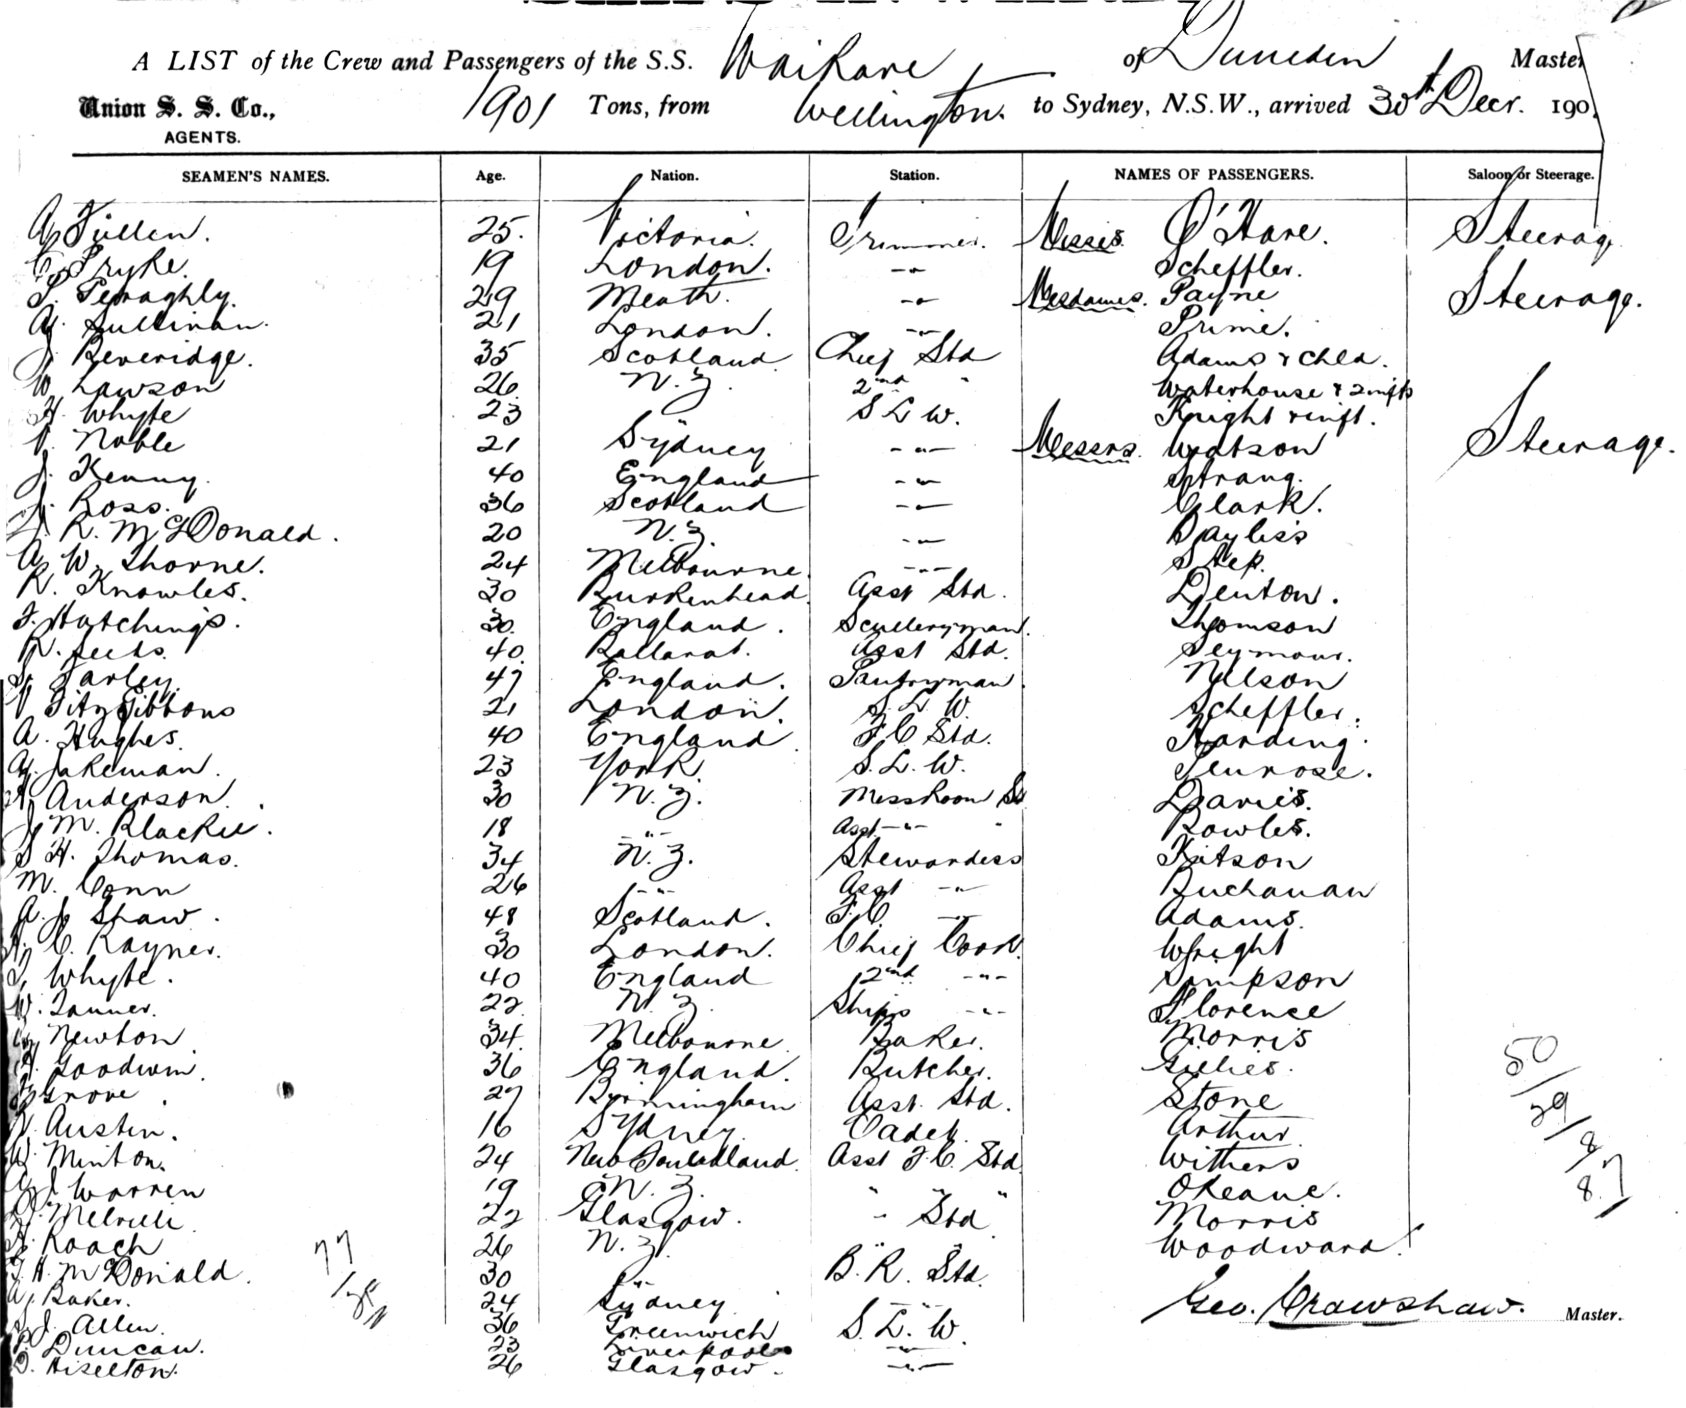 A LIST of the Crew and Passengers of the S.S. Waikare of Dunedin Master
Union S. S. Co., AGENTS. 1901 Tons, from Wellington. to Sydney, N.S.W., arrived 30th Decr. 190
SEAMEN'S NAMES. Age. Nation. Station. NAMES OF PASSENGERS. Saloon or Steerage.
25. Victoria. Trimmer. Misses O'Hare. Steerage
C. Pryke. 19 London. -"- Scheffler.
29 Meath. -"- Mesdames. Payne Steerage.
Sullivan. 21 London. -"- Prime.
J. Beveridge. 35 Scotland Chief Std Adams & Chld.
W. Lawson 26 N. Z. 2nd " Waterhouse & 2 infts
H. Whyte 23 S L W. Knight & inft.
V. Noble 21 Sydney -"- Messrs. Watson Steerage.
J. Kenny. 40 England -"- Strang.
J. Ross. 36 Scotland -"- Clark.
R. McDonald. 20 N.Z. -"- Bayliss
A. W. Thorne. 24 Melbourne -"-
R. Knowles. 30 Burkenhead Asst Std. Denton.
F. Hutchings. 30. England. Sculleryman. Thomson
R. 40. Ballarat. Asst Std. Seymour.
Farley. 47 England. Pantryman. Nelson
V FitzGibbons 21 London. S. L. W. Scheffler.
A. Hughes. 40 England F. C Std. Harding.
Jakeman. 23 York. S. L. W. Penrose.
Anderson. 30 N. Z. Messroom Std Davies.
J. M. Blackie. 18 -"- Asst -"- " Bowles.
S H. Thomas. 34 N. Z. Stewardess Kitson
M. Conn 26 -"- Asst -"- Buchanan
A. J. Shaw. 48 Scotland. F. C. -"- Adams.
H. C. Rayner. 30 London. Chief Cook. Wright
Whyte. 40 England 2nd -"- Simpson
W. Tanner. 22 N. Z. Ships -"- Florence
Newton 34. Melbourne Baker. Morris
H. Goodwin. 36 England. Butcher. Gillies.
Grove. 27 Birmingham Asst. Std. Stone
Austin. 16 Sydney. Cadet. Arthur.
W. Minton. 24 Asst F. C. Std Withers
Warren 19 N. Z. " " " OKeane.
Melville. 22 Glasgow. " Std Morris
Roach 26 N. Z. Woodward.
H. McDonald. 30 -"- B. R. Std.
Baker. 24 Sydney -"-
J. Allen. 36 Greenwich S. L. W.
Duncan. 23 Liverpool -"-
D. Hiselton. 26 Glasgow. -"-
Geo. Crawshaw. Master.
50/29/8/87
77